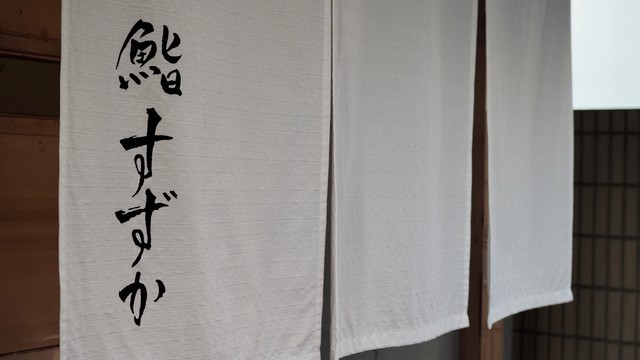 鮨すずか